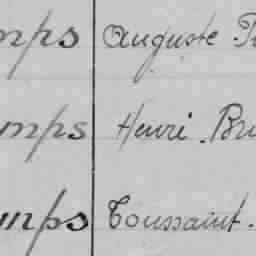 mps Auguste
mps Henri
mps Toussaint